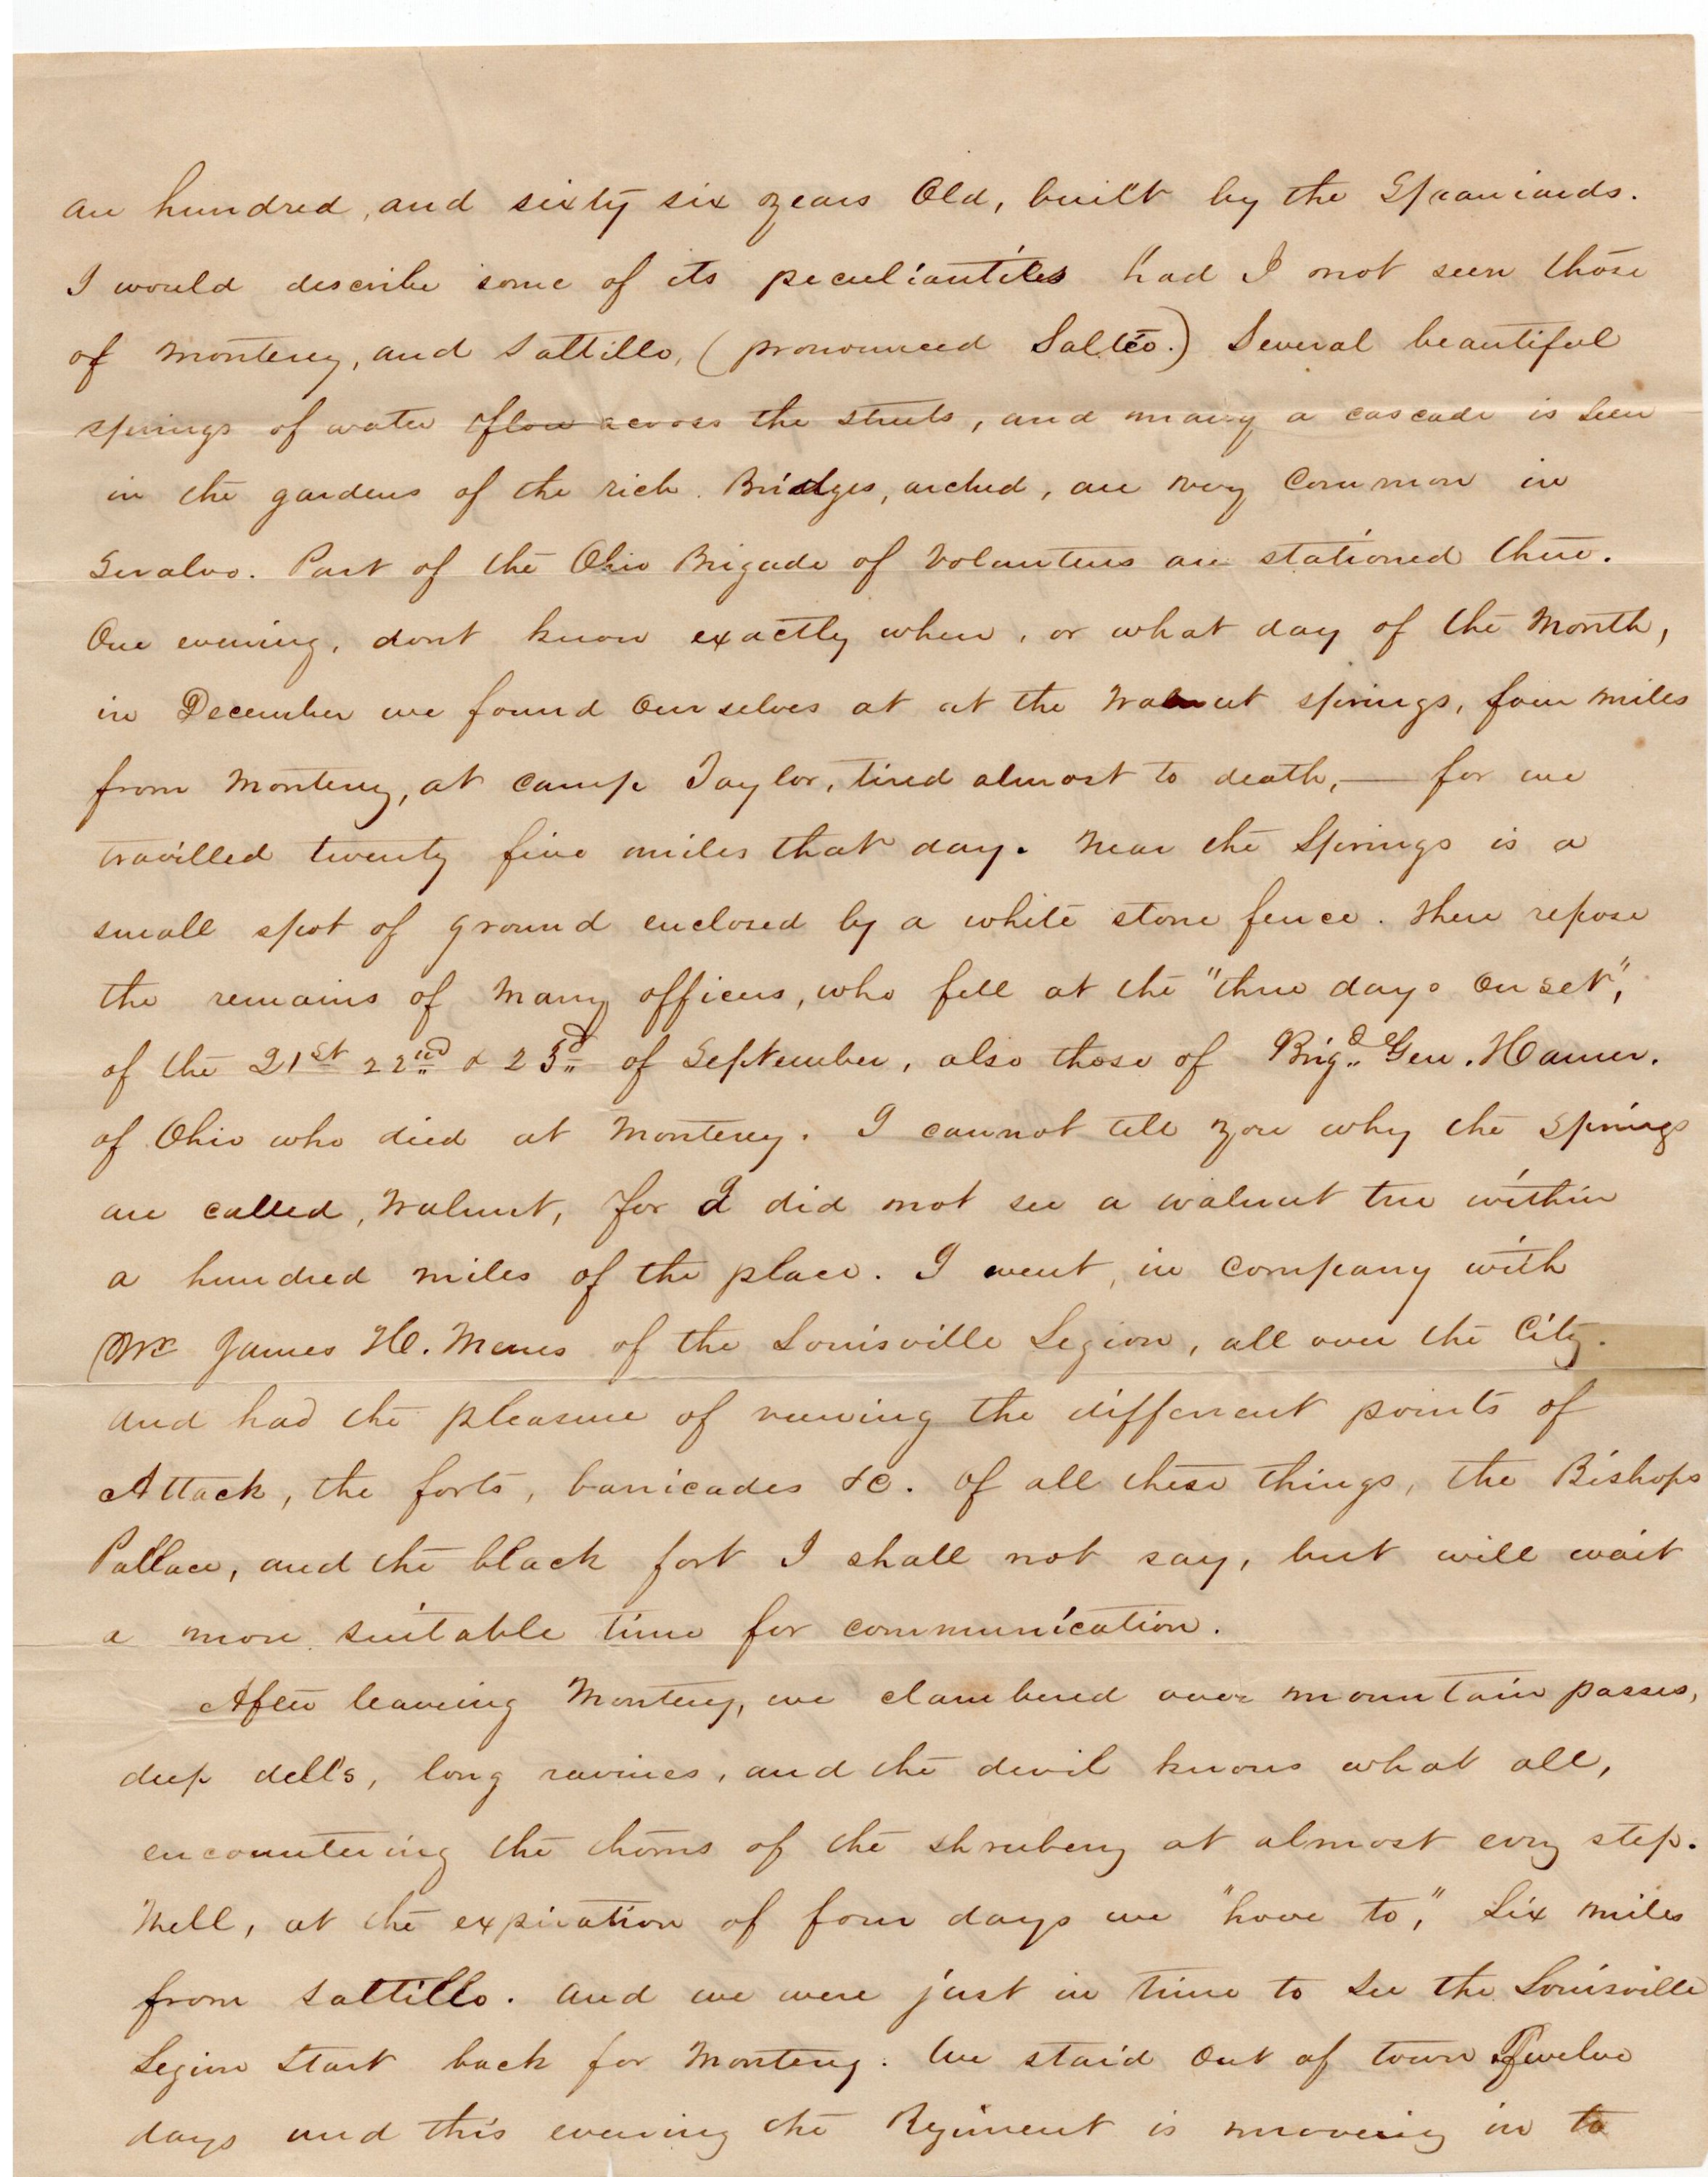 an hundred, and sixty six years Old, built by the Spaniards.
I would describe some of its peculiarities had I not seen those
of Monterey, and Saltillo, (pronounced Saltéo.) Several beautiful
springs of water flow across the streets, and many a cascade is seen
in the gardens of the rich. Bridges, arched, are very Common in
Seralvo. Part of the Ohio Brigade of Volunteers are stationed there.
One evening, dont know exactly when, or what day of the Month,
in December we found Ourselves at at the Walnut springs, four miles
from Monterey, at Camp Taylor, tired almost to death, — for we
travilled twenty five miles that day. Near the Springs is a
small spot of ground enclosed by a white stone fence. Here repose
the remains of Many officers, who fell at the "three days Onset",
of the 21st 22nd & 23d of September, also those of Brigd. Gen. Hamer.
of Ohio who died at Monterey. I cannot tell you why the Springs
are called, Walnut, for I did not see a walnut tree within
a hundred miles of the place. I went, in Company with
Mr James H. Menes of the Louisville Legion, all over the City.
and had the pleasure of viewing the different points of
Attack, the forts, barricades &c. Of all these things, the Bishops
Pallace, and the black fort I shall not say, but will wait
a more suitable time for communication.
After leaving Monterey, we clambered over mountain passes,
deep dells, long ravines, and the devil knows what all,
encountering the thorns of the shrubery at almost evry step.
Well, at the expiration of four days we "hove to," Six miles
from Saltillo. And we were just in time to See the Louisville
Legion Start back for Monterey. We staid Out of town Twelve
days and this evening the Regiment is moveing in to